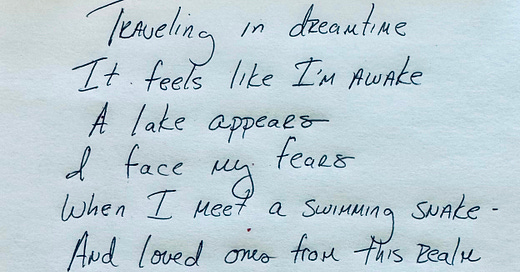 Traveling in dreamtime
It feels like I'm awake
A lake appears
I face my fears
When I meet a swimming snake -
And loved ones from this realm